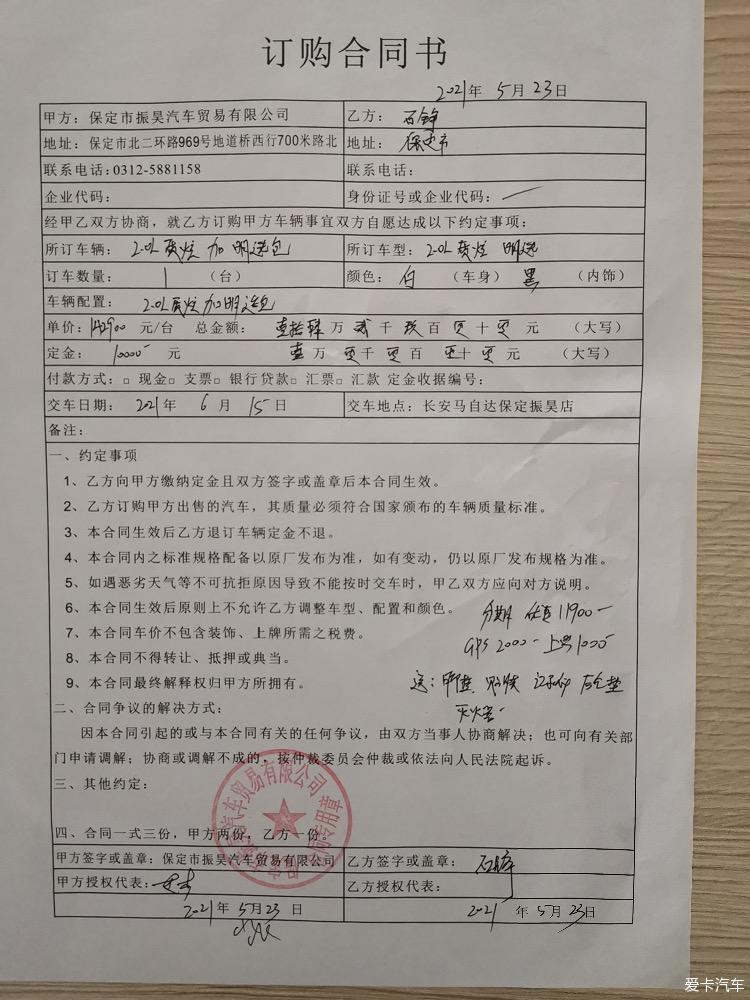 订购合同书
2021年 5月23日
甲方：保定市振昊汽车贸易有限公司 乙方：
地址：保定市北二环路969号地道桥西行700米路北 地址：保定市
联系电话:0312-5881158 联系电话:
企业代码: 身份证号或企业代码:
经甲乙双方协商，就乙方订购甲方车辆事宜双方自愿达成以下约定事项：
所订车辆： 2.0L 质炫 加 明选包 所订车型： 2.0L 质炫 明选
订车数量： 1 （台） 颜色：白 （车身） 黑 （内饰）
车辆配置： 2.0L质炫加明选包
单价：142900 元/台 总金额： 壹拾肆 万 贰 千 玖 百 零 十 零 元 （大写）
定金： 10000 元 壹 万 零 千 零 百 零 十 零 元 （大写）
付款方式：□ 现金□ 支票□ 银行贷款□ 汇票□ 汇款 定金收据编号：
交车日期： 2021 年 6 月 15 日 交车地点：长安马自达保定振昊店
备注：
一、约定事项
1、乙方向甲方缴纳定金且双方签字或盖章后本合同生效。
2、乙方订购甲方出售的汽车，其质量必须符合国家颁布的车辆质量标准。
3、本合同生效后乙方退订车辆定金不退。
4、本合同内之标准规格配备以原厂发布为准，如有变动，仍以原厂发布规格为准。
5、如遇恶劣天气等不可抗拒原因导致不能按时交车时，甲乙双方应向对方说明。
6、本合同生效后原则上不允许乙方调整车型、配置和颜色。 分期 11900
7、本合同车价不包含装饰、上牌所需之税费。 GPS 2000 上牌1000
8、本合同不得转让、抵押或典当。
9、本合同最终解释权归甲方所有。 送：脚垫 记录仪 后备垫
二、合同争议的解决方式： 灭火器
因本合同引起的或与本合同有关的任何争议，由双方当事人协商解决；也可向有关部
门申请调解；协商或调解不成的，按仲裁委员会仲裁或依法向人民法院起诉。
三、其他约定：
四、合同一式三份，甲方两份，乙方一份。
甲方签字或盖章：保定市振昊汽车贸易有限公司 乙方签字或盖章：
甲方授权代表： 乙方授权代表：
2021年 5月23 日 2021 年 5月 23日
爱卡汽车